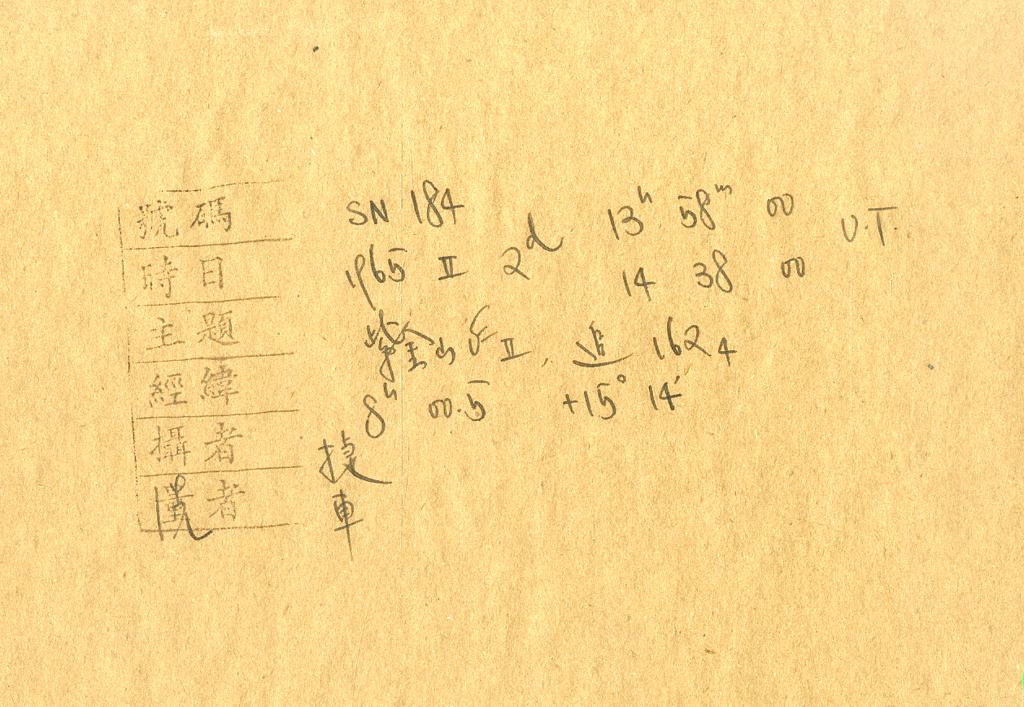 號碼 SN 184 13h 58m 00 U.T.
時日 1965 II 2d 14 38 00
主題 紫金山 II. 追 1624
經緯 8h 00.5 +15° 14'
攝者
者 車